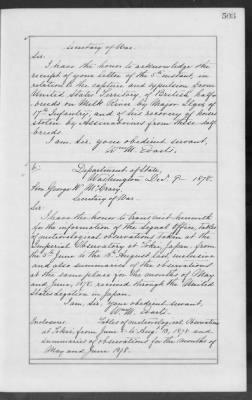 503
Secretary of War.
Sir:
I have the honor to acknowledge the
receipt of your letter of the 5th instant, in
relation to the capture and expulsion from
United States Territory of British half-
breeds on Milk River by Major Ilges of
17th Infantry, and of his recovery of horses
stolen by Assinaboines from these half
breeds.
I am, sir, your obedient servant,
Wm M. Evarts.
Department of State,
Washington Dec. 9th 1878.
Hon. George W. McCrary
Secretary of War.
Sir:
I have the honor to transmit herewith
for the information of the Signal Office, tables
of meteorological observations taken at the
Imperial Observatory at Tokei, Japan, from
the 5th June to the 13th August last, inclusive
and also summaries of the observations
at the same place for the months of May
and June, 1878, received through the United
States Legation in Japan.
I am, sir, your obedient servant,
Wm M. Evarts.
Enclosures: Tables of meteorological observations
at Tokei, from June 5 to Aug. 13, 1878 and
summaries of observations for the months of
May and June 1878.